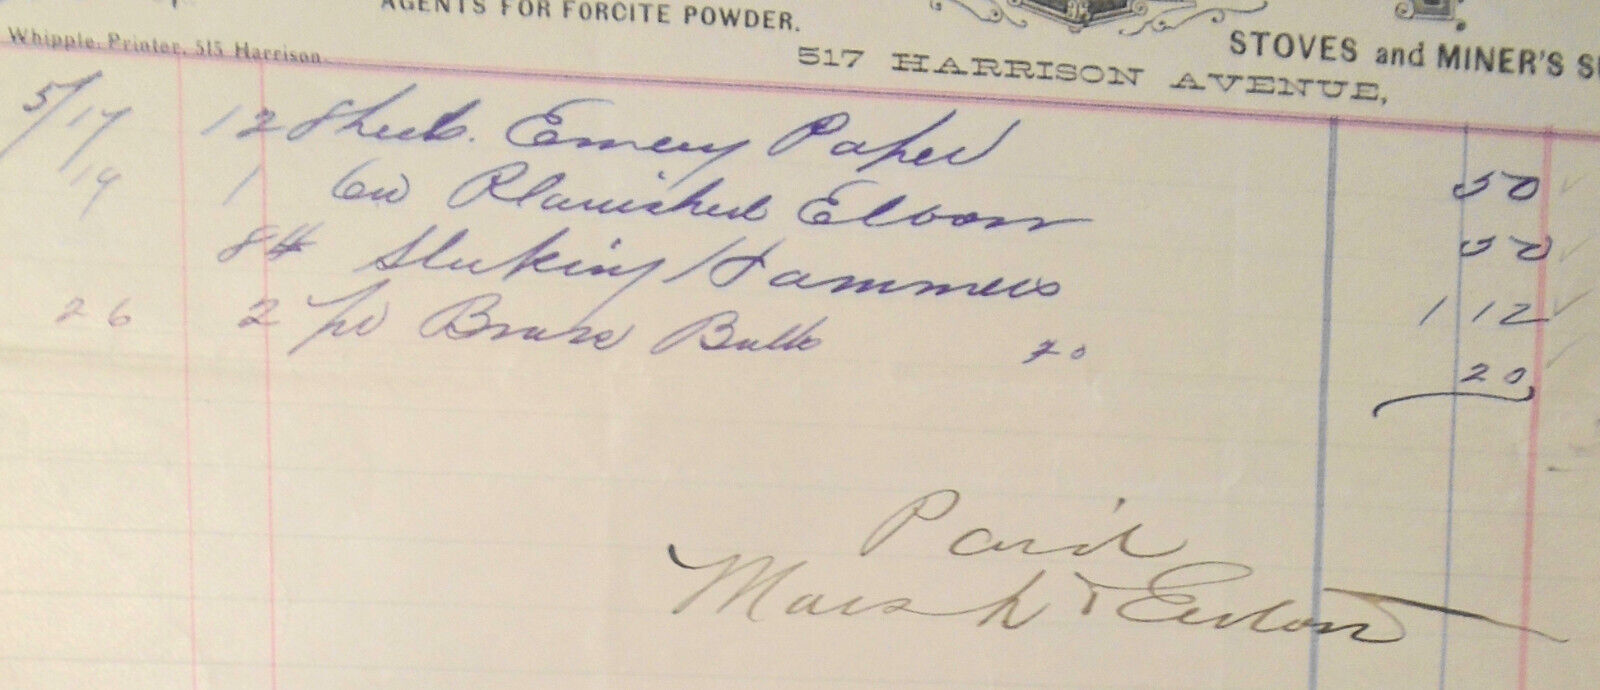 AGENTS FOR FORCITE POWDER.
Whipple, Printer, 515 Harrison
STOVES and MINER'S
517 HARRISON AVENUE,
5/17 12 Sheets Emery Paper 50
19 1 6in Planished Elbow 50
8# Hammers 1 12
26 2 pr Brass Butts 20
20
Paid
Marsh &